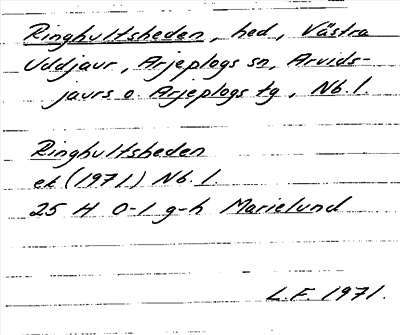 Ringhultsheden, hed, Västra
Uddjaur, Arjeplogs sn, Arvids-
jaurs o. Arjeplogs tg, Nb. l.
Ringhultsheden
ek (1971) Nb. l.
25 H 0-1 g-h Marielund
L.F. 1971.